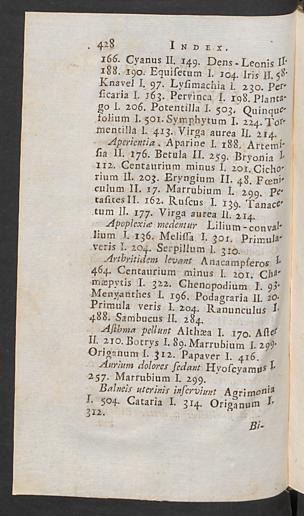 428 INDEX.
166. Cyanus II. 149. Dens-Leonis II.
188. 190. Equiſetum I. 104. Iris II. 58.
Knavel I. 97. Lyſimachia I. 230. Per-
ſicaria I. 163. Pervinca I. 198. Planta-
go I. 206. Potentilla I. 503. Quinque-
folium I. 501. Symphytum I. 224. Tor-
mentilla I. 413. Virga aurea II. 214.
Aperientia. Aparine I. 188. Artemi-
ſia II. 176. Betula II. 259. Bryonia I.
112. Centaurium minus I. 201. Cicho-
rium II. 203. Eryngium II. 48. Fœni-
culum II. 17. Marrubium I. 299. Pe-
taſites II. 162. Ruſcus I. 139. Tanace-
tum II. 177. Virga aurea II. 214.
Apoplexiæ medentur Lilium-conval-
lium I. 136. Meliſſa I. 301. Primula-
veris I. 204. Serpillum I. 310.
Arthritidem levant Anacampſeros I.
464. Centaurium minus I. 201. Cha-
mæpytis I. 322. Chenopodium I. 93.
Menyanthes I. 196. Podagraria II. 20.
Primula veris I. 204. Ranunculus I.
488. Sambucus II. 284.
Aſthma pellunt Althæa I. 170. Aſter
II. 210. Botrys I. 89. Marrubium I. 299.
Origanum I. 312. Papaver I. 416.
Aurium dolores ſedant Hyoſcyamus I.
257. Marrubium I. 299.
Balneis uterinis inſerviunt Agrimonia
I. 504. Cataria I. 314. Origanum I.
312.
Bi-